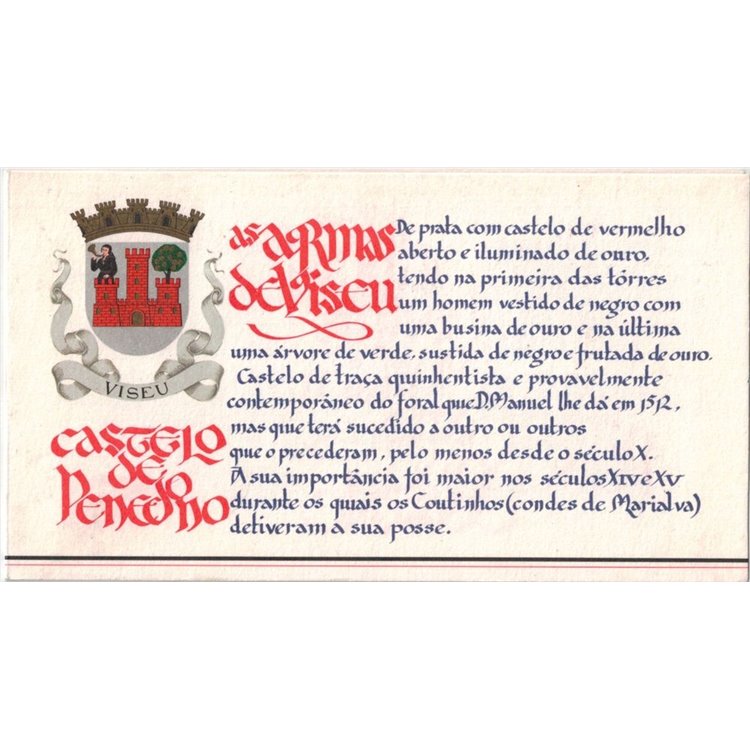 VISEU
as armas
de Viseu
De prata com castelo de vermelho
aberto e iluminado de ouro,
tendo na primeira das tôrres
um homem vestido de negro com
uma busina de ouro e na última
uma árvore de verde, sustida de negro e frutada de ouro.
Castelo de traça quinhentista e provavelmente
contemporâneo do foral que D. Manuel lhe dá em 1512,
mas que terá sucedido a outro ou outros
que o precederam, pelo menos desde o século X.
A sua importância foi maior nos séculos XIV e XV
durante os quais os Coutinhos (condes de Marialva)
detiveram a sua posse.
CASTELO
de
Penedono